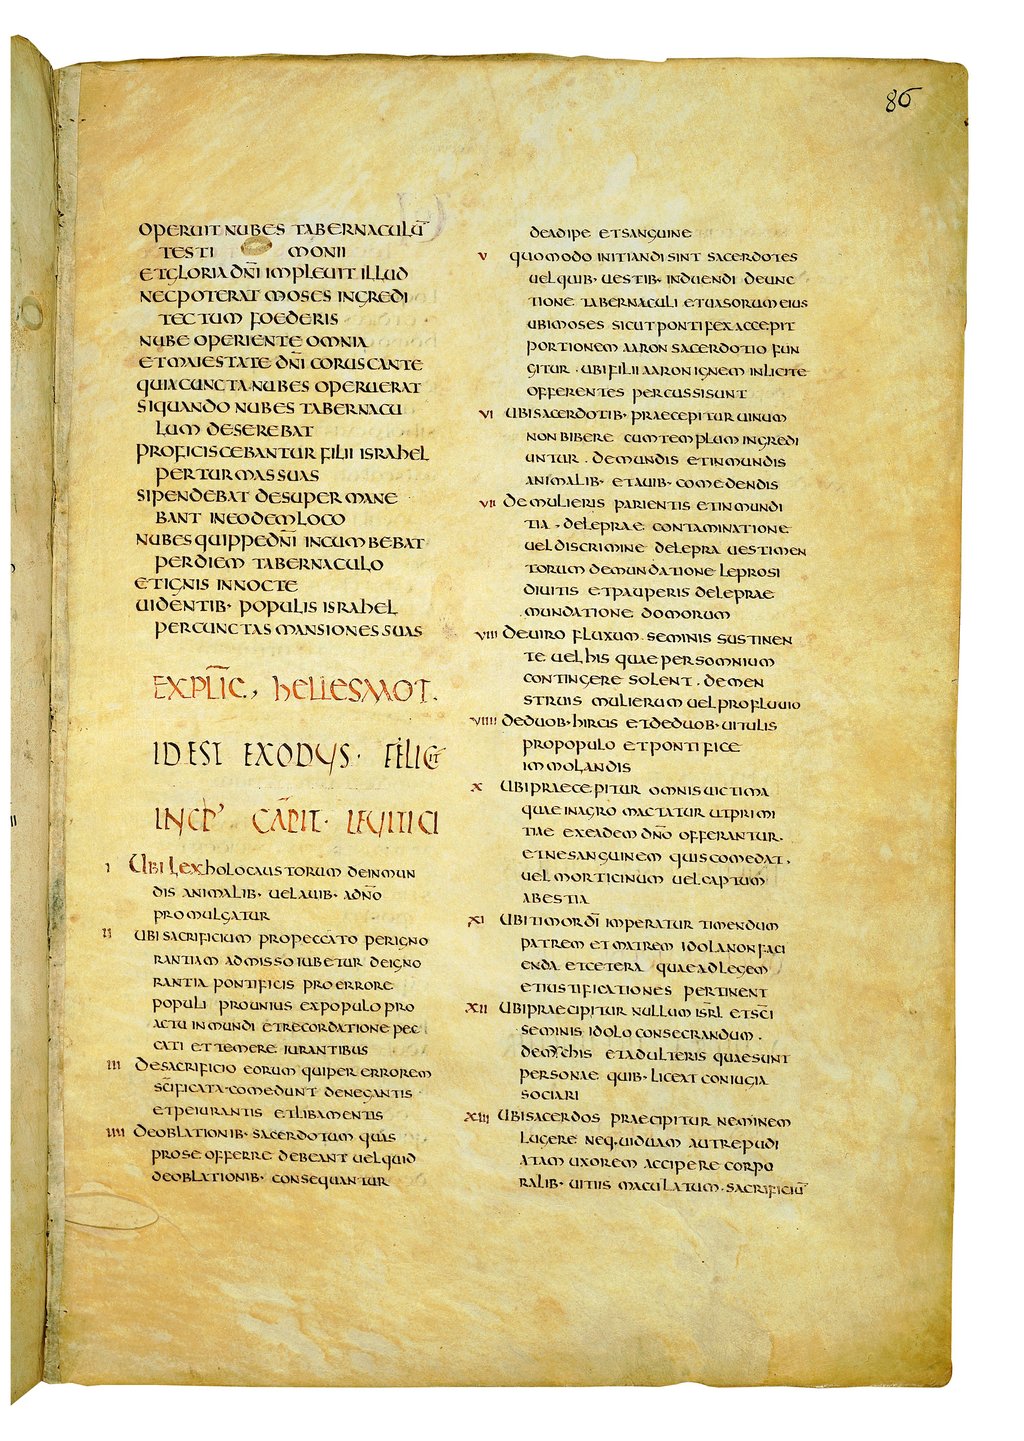 86
OPERUIT NUBES TABERNACULŪ
TESTI MONII
ET GLORIA DN̄I IMPLEUIT ILLUD
NEC POTERAT MOSES INGREDI
TECTUM FOEDERIS
NUBE OPERIENTE OMNIA
ET MAIESTATE DN̄I CORUSCANTE
QUIA CUNCTA NUBES OPERUERAT
SI QUANDO NUBES TABERNACU
LUM DESEREBAT
PROFICISCEBANTUR FILII ISRAHEL
PER TURMAS SUAS
SI PENDEBAT DESUPER MANE
BANT IN EODEM LOCO
NUBES QUIPPE DN̄I INCUMBEBAT
PER DIEM TABERNACULO
ET IGNIS IN NOCTE
UIDENTIB· POPULIS ISRAHEL
PER CUNCTAS MANSIONES SUAS
EXPLIC̄, HELLESMOT.
ID EST EXODUS· FELICIT
INCP' CAPIT̄· LEUITICI
I UBI LEX HOLOCAUSTORUM DE INMUN
DIS ANIMALIB· UEL AUIB· AD N̄O
PROMULGATUR
II UBI SACRIFICIUM PRO PECCATO PER IGNO
RANTIAM ADMISSO IUBETUR DE IGNO
RANTIA PONTIFICIS PRO ERRORE
POPULI PRO UNIUS EX POPULO PRO
ACTU INMUNDI ET RECORDATIONE PEC
CATI ET TEMERE IURANTIBUS
III DE SACRIFICIO EORUM QUI PER ERROREM
SC̄IFICATA COMEDUNT DE NEGANTIS
ET PEIURANTIS ET LIBAMENTIS
IIII DE OBLATIONIB· SACERDOTUM QUIS
PRO SE OFFERRE DEBEANT UEL QUID
DE OBLATIONIB· CONSEQUANTUR
DE ADIPE ET SANGUINE
V QUOMODO INITIANDI SINT SACERDOTES
UEL QUIB· UESTIB· INDUENDI DE UNC
TIONE TABERNACULI ET UASORUM EIUS
UBI MOSES SICUT PONTIFEX ACCEPIT
PORTIONEM AARON SACERDOTIO FUN
GITUR · UBI FILII AARON IGNEM INLICITE
OFFERENTES PERCUSSI SUNT
VI UBI SACERDOTIB· PRAECEPITUR UINUM
NON BIBERE CUM TEMPLUM INGREDI
UNTUR · DE MUNDIS ET INMUNDIS
ANIMALIB· ET AUIB· COMEDENDIS
VII DE MULIERIS PARIENTIS ET INMUNDI
TIA · DE LEPRAE CONTAMINATIONE
UEL DISCRIMINE DE LEPRA UESTIMEN
TORUM DE MUNDATIONE LEPROSI
DIUITIS ET PAUPERIS DE LEPRAE
MUNDATIONE DOMORUM
VIII DE UIRO FLUXUM SEMINIS SUSTINEN
TE UEL HIS QUAE PER SOMNIUM
CONTINGERE SOLENT · DE MEN
STRUIS MULIERUM UEL PROFLUUIO
VIIII DE DUOB· HIRCIS ET DE DUOB· UITULIS
PRO POPULO ET PONTIFICE
IMMOLANDIS
X UBI PRAECEPITUR OMNIS UICTIMA
QUAE IN AGRO MACTATUR UT PRIMI
TIAE EX EADEM DN̄O OFFERANTUR·
ET NE SANGUINEM QUIS COMEDAT ·
UEL MORTICINUM UEL CAPTUM
A BESTIA
XI UBI TIMOR DĪ IMPERATUR TIMENDUM
PATREM ET MATREM IDOLA NON FACI
ENDA ET CETERA QUAE AD LEGEM
ET IUSTIFICATIONES PERTINENT
XII UBI PRAECIPITUR NULLUM ISRL̄ ET SC̄I
SEMINIS IDOLO CONSECRANDUM ·
ET ADULTERIS QUAE SUNT
PERSONAE QUIB· LICEAT CONIUGIA
SOCIARI
XIII UBI SACERDOS PRAECIPITUR NEMINEM
LUGERE NEQ· UIDUAM AUT REPUDI
ATAM UXOREM ACCIPERE CORPO
RALIB· UITIIS MACULATUM · SACRIFICIŪ